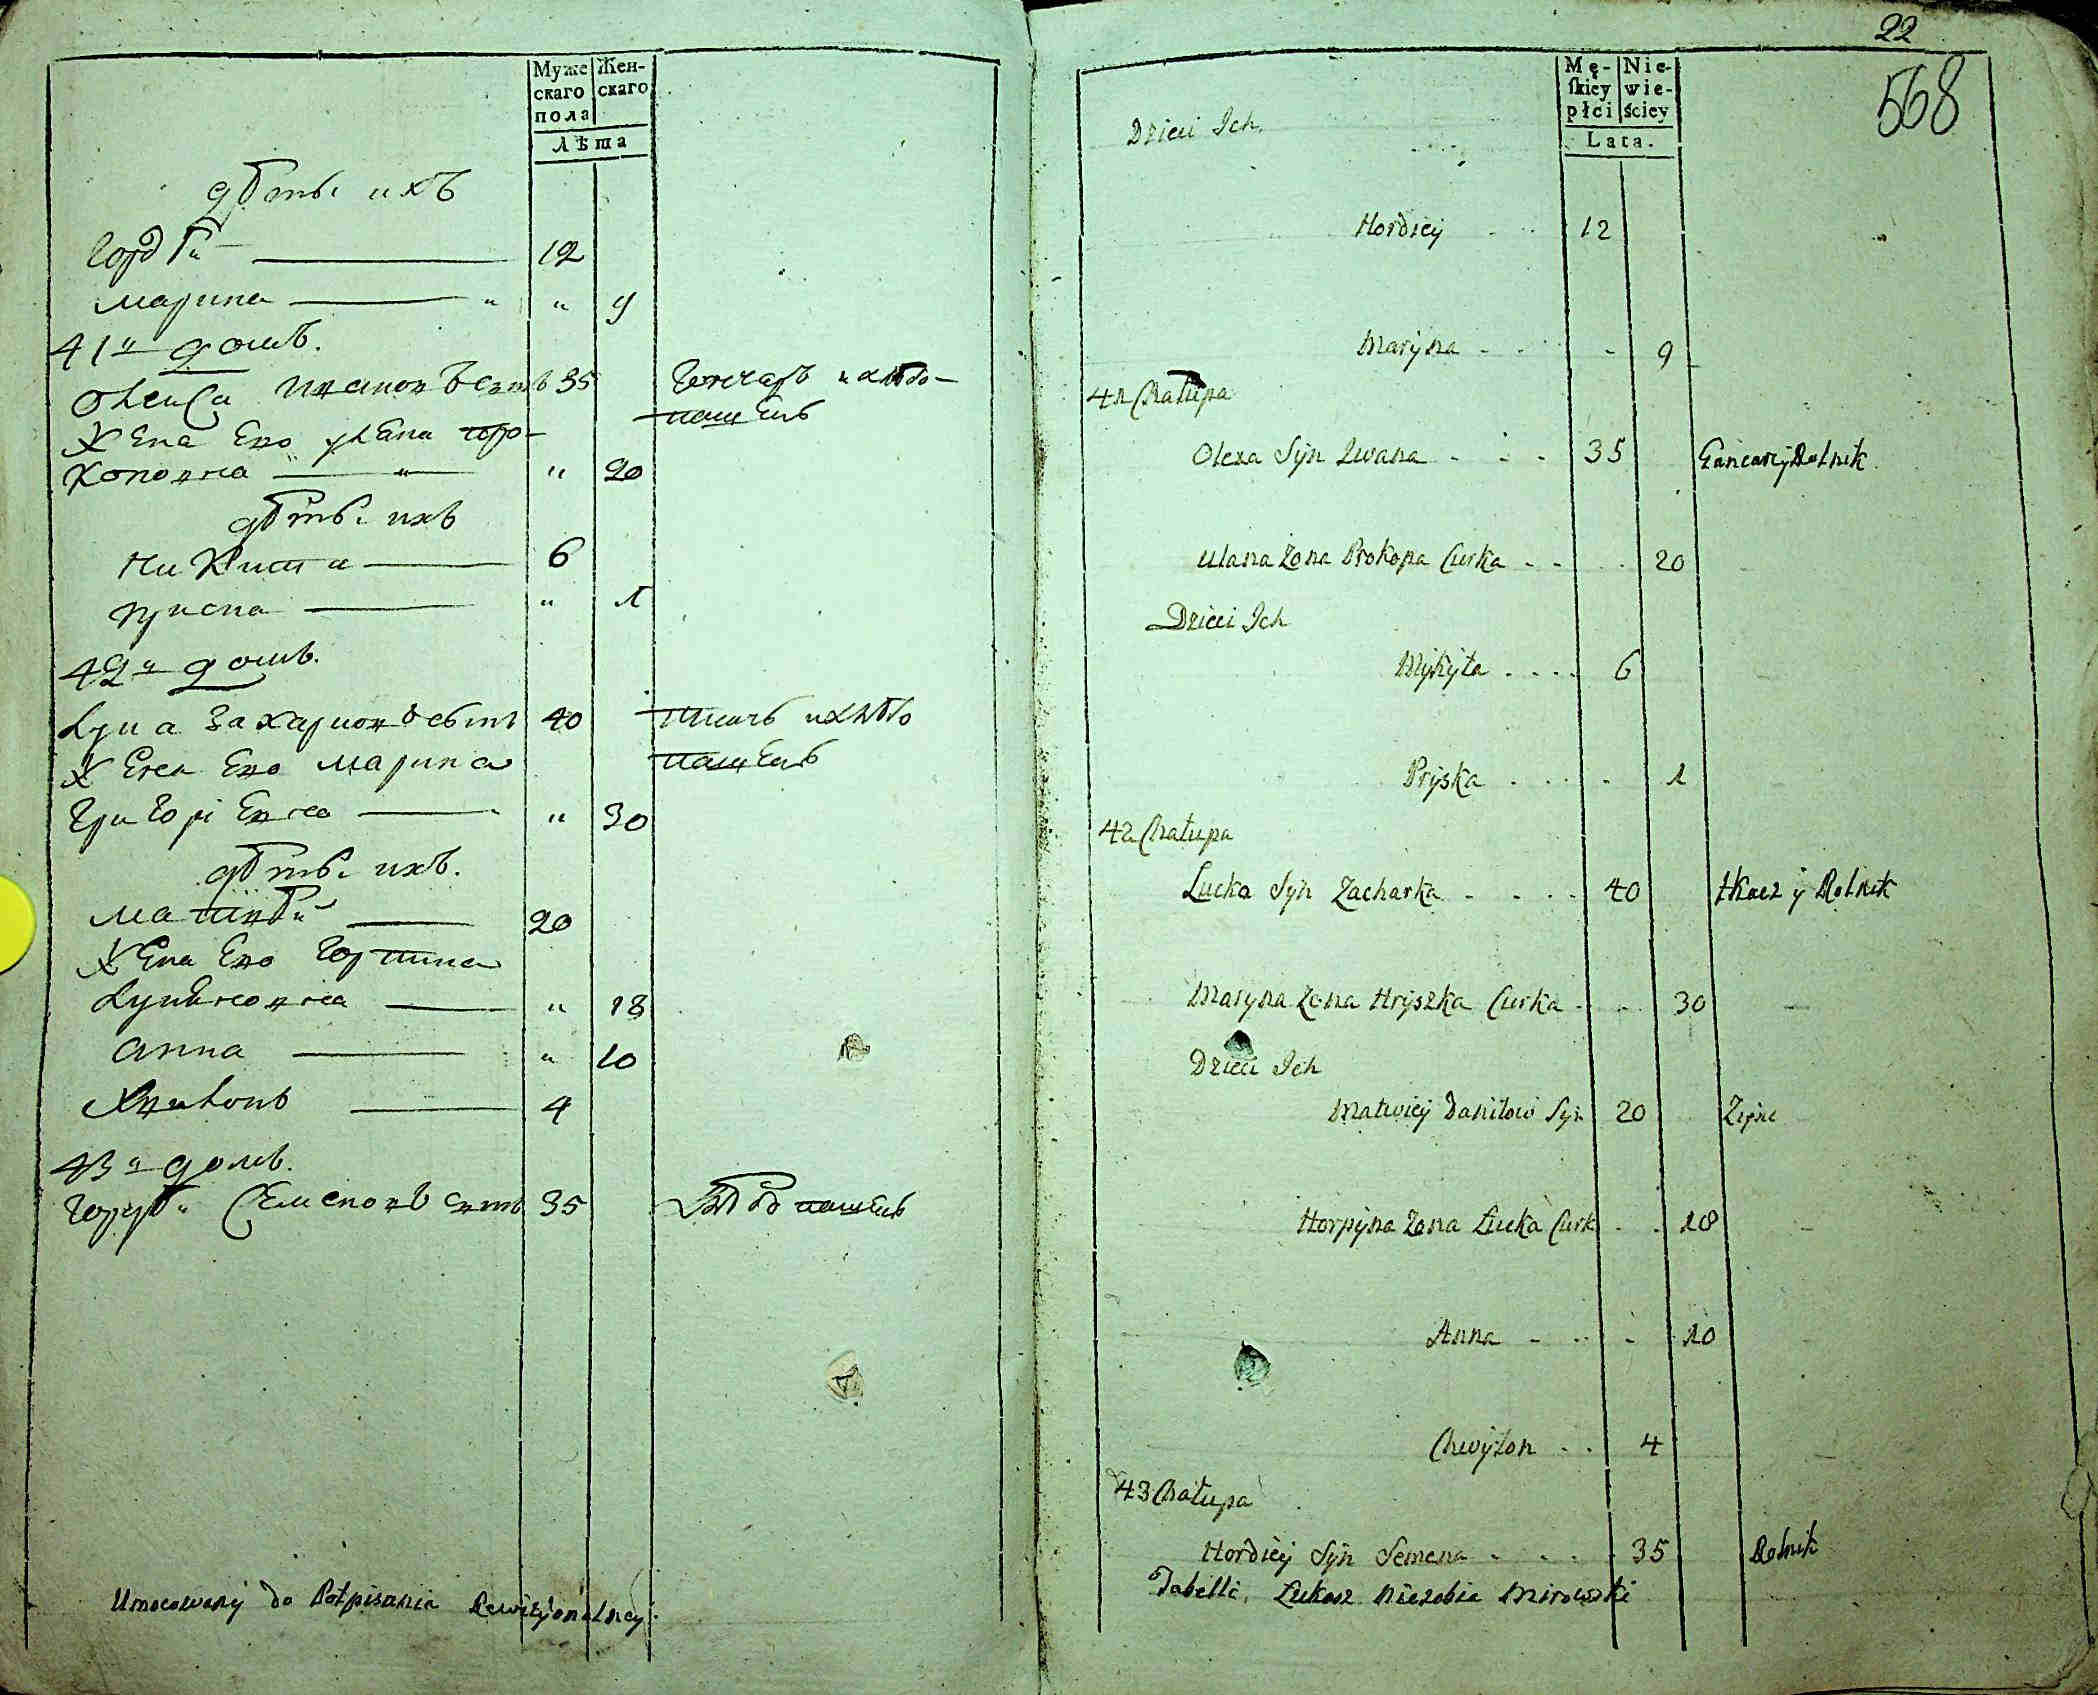 Муже Жен-
скаго скаго
пола
Лѣта
дѣти ихъ
Гордѣй 12
Марина " " 9
41й домъ.
Олекса Ивановъ сынъ 35 Гончаръ и хлѣбо-
пашецъ
Жена Его Улена Про-
коповна " " 20
дѣти ихъ
Никита 6
Приска " 1
42й домъ.
Луца Захариовъ сынъ 40 ткачъ и хлѣбо
пашецъ
Жена Его Марина
Григоріевна " 30
дѣти ихъ.
Матвѣй 20
Жена Его Горпина
" 18
Анна " 10
Хвилонъ 4
43й домъ.
Гордѣй Семеновъ сынъ 35 Хлѣбо пашецъ
Umocowany do Potpisania Rewizyonalney
22
568
Mę- Nie-
skiey wie-
płci ściey
Lata.
Dzieci Ich.
Hordiey 12
Maryna 9
41 Chałupa
Olexa Syn Iwana 35 Gancarz y Rolnik.
Ulana Żona Prokopa Curka 20
Dzieci Ich
Mykyta 6
Pryska 1
42 Chałupa
Lucka Syn Zacharka 40 tkacz y Rolnik
Maryna Żona Hryszka Curka 30
Dzieci Ich
Matwiey Daniłow Syn 20
Horpyna Żona Łucka Curk 18
Anna 10
Chwylon 4
43 Chałupa
Hordiey Syn Semena 35 Rolnik
Tabelli, Łukasz Niezabia Mirowski